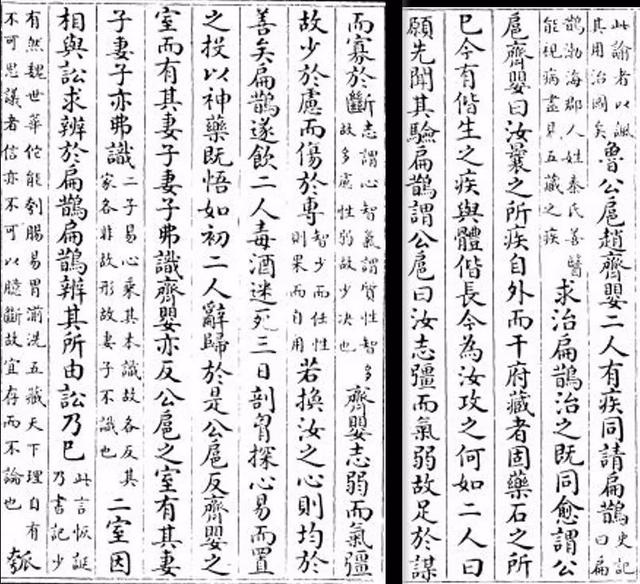 此諭者以諷其用治國矣魯公扈趙齊嬰二人有疾同請扁鵲史記曰扁
鵲渤海郡人姓秦氏善醫能視病盡見五藏之疾求治扁鵲治之既同愈謂公
扈齊嬰曰汝曩之所疾自外而干府藏者固藥石之所
已今有偕生之疾與體偕長今為汝攻之何如二人曰
願先聞其驗扁鵲謂公扈曰汝志彊而氣弱故足於謀
而寡於斷志謂心智氣謂質性智多故多慮性弱故少决也齊嬰志弱而氣彊
故少於慮而傷於專智少而任性則果而自用若換汝之心則均於
善矣扁鵲遂飲二人毒酒迷死三日剖胷探心易而置
之投以神藥既悟如初二人辭歸於是公扈反齊嬰之
室而有其妻子妻子弗識齊嬰亦反公扈之室有其妻
子妻子亦弗識二子易心乘其本識故各反其家各非故形故妻子不識也二室因
相與訟求辨於扁鵲扁鵲辨其所由訟乃已此言恢誕乃書記少
有然魏世華佗能刳腸易胃湔洗五藏天下理自有不可思議者信亦不可以臆斷故宜存而不論也瓠